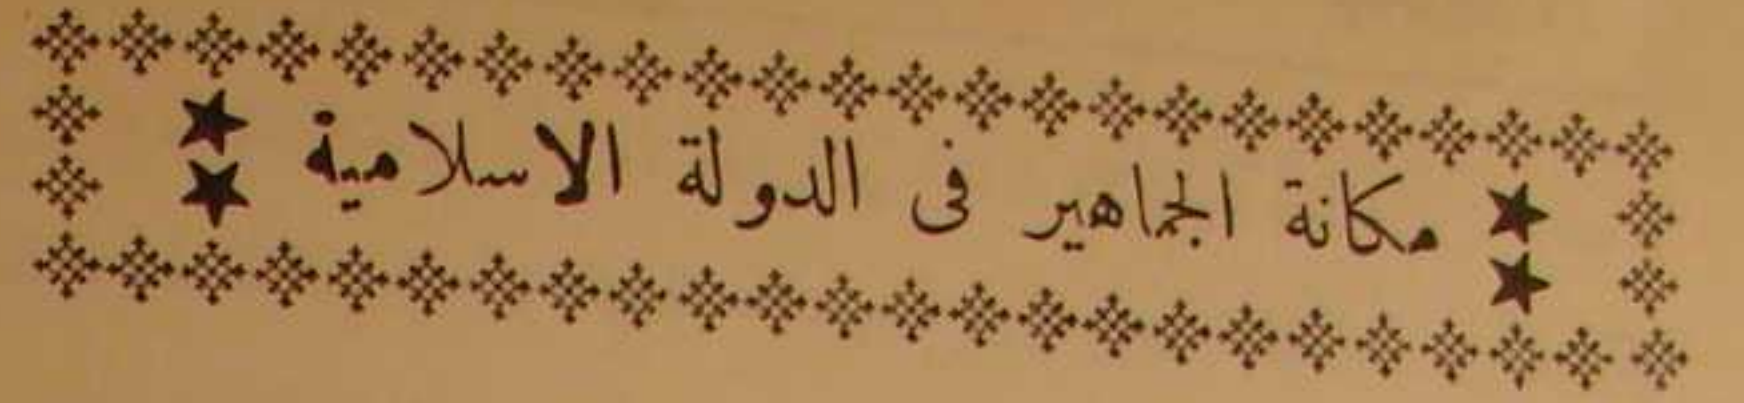 مكانة الجماهير فى الدولة الاسلامية